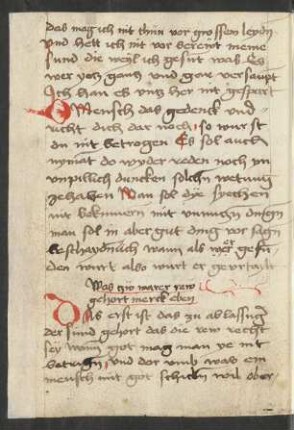 das mag ich nit thun vor grossem leydn
Und hett ich nit vor bereint meine
sund die weyl ich gesunt was Es
wer yoh gancz und gare versaupt
Ich han es uncz her nit gespert
O Mensch das gedenck und
richt dich dar noch so wurst
du nit betrogen Es sol auch
nymat do wyder reden noch im
unpillich duncken solchn
gehaben Man sol dye syechen
nit bekumern mit unnuczn dingn
man sol in aber gut ding vor sagn
beschaydnlich wann als
den wirt also wurt er
Was zu warer rew
gehort merck eben
Das erst ist das zu ablassung
der sund gehort das die rew recht
sey wann got mag man ye nit
betrign und dor umb was ein
mensch mit got schickn wil aber